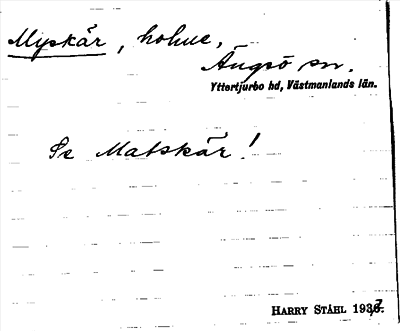 Myskär, holme,
Ängsö sn.
Yttertjurbo hd, Västmanlands län.
Se Matskär!
HARRY STÅHL 1937.